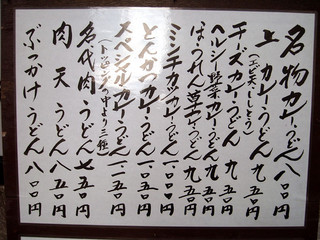 名物カレーうどん 八〇〇円
上カレーうどん 九五〇円
(エビ天、ししとう)
チーズカレーうどん 九五〇円
ヘルシー野菜カレーうどん 九五〇円
ほうれん草カレーうどん 九五〇円
ミンチカツカレーうどん 一〇五〇円
とんかつカレーうどん 一〇五〇円
スペシャルカレーうどん 一一五〇円
(トッピングの中より三種)
名代肉うどん 七五〇円
肉天うどん 八五〇円
ぶっかけうどん 八〇〇円